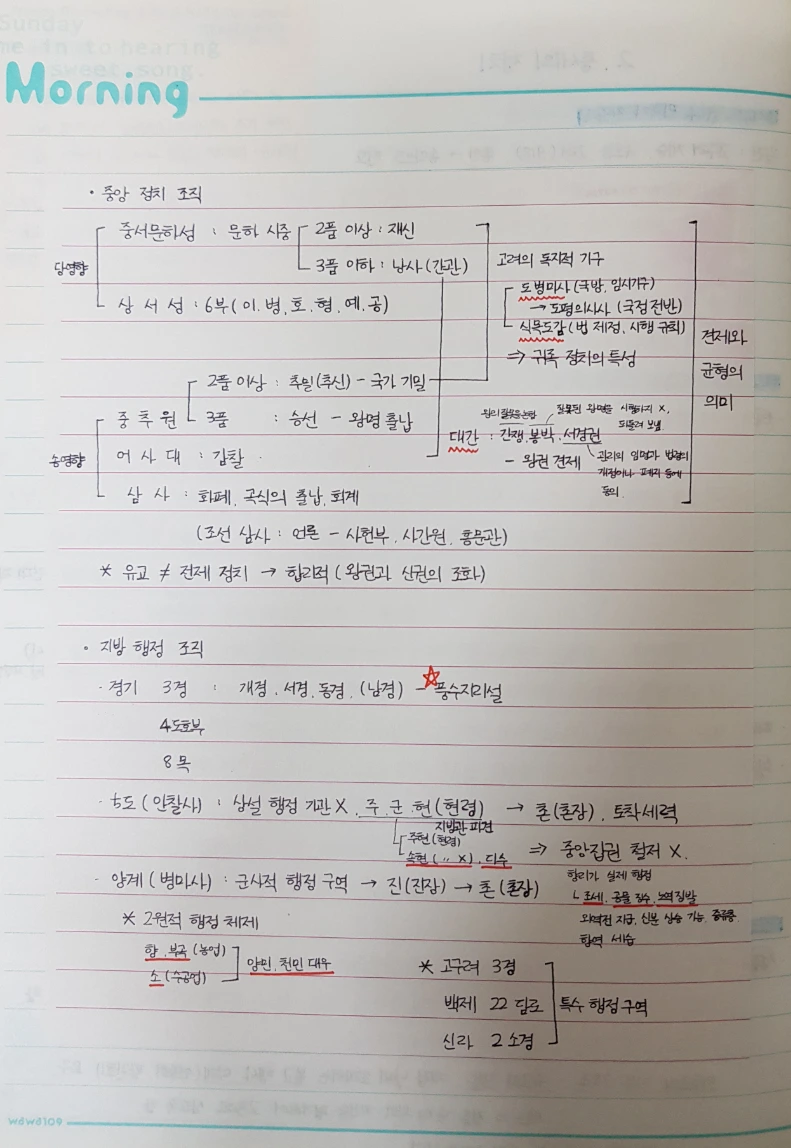 Sunday
me in to hearing
sweet song.
Morning
· 중앙 정치 조직
당영향
중서문하성 : 문하 시중
2품 이상 : 재신
3품 이하 : 낭사 (간관)
상 서 성 : 6부 (이. 병. 호. 형. 예. 공)
고려의 독자적 기구
도병마사 (국방, 임시기구)
→ 도평의사사 (국정 전반)
식목도감 (법 제정, 시행 규칙)
⇒ 귀족 정치의 특성
견제와
균형의
의미
송영향
중 추 원
2품 이상 : 추밀(추신) - 국가 기밀
3품 : 승선 - 왕명 출납
어 사 대 : 감찰
왕의 잘못을 논함
잘못된 왕명을 시행하지 X,
되돌려 보냄
대간 : 간쟁, 봉박, 서경권
- 왕권 견제
관리의 임명과 법령의
개정이나 폐지 등에
동의.
삼 사 : 화폐, 곡식의 출납, 회계
(조선 삼사 : 언론 - 사헌부, 사간원, 홍문관)
* 유교 ≠ 전제 정치 → 합리적 (왕권과 신권의 조화)
· 지방 행정 조직
· 경기 3경 : 개경, 서경, 동경, (남경) - ☆풍수지리설
4도호부
8목
· 5도 (안찰사) : 상설 행정 기관 X, 주. 군. 현(현령) → 촌(촌장). 토착세력
지방관 파견
주현(현령)
속현( 〃 X). 다수
⇒ 중앙집권 철저 X.
· 양계 (병마사) : 군사적 행정 구역 → 진(진장) → 촌(촌장)
향리가 실제 행정
└ 조세, 공물 징수, 노역 징발
외역전 지급, 신분 상승 가능, 중류층
향역 세습
* 2원적 행정 체제
향, 부곡 (농업)
소 (수공업)
양민, 천민 대우
* 고구려 3경
백제 22 담로
신라 2 소경
특수 행정 구역
wawa109